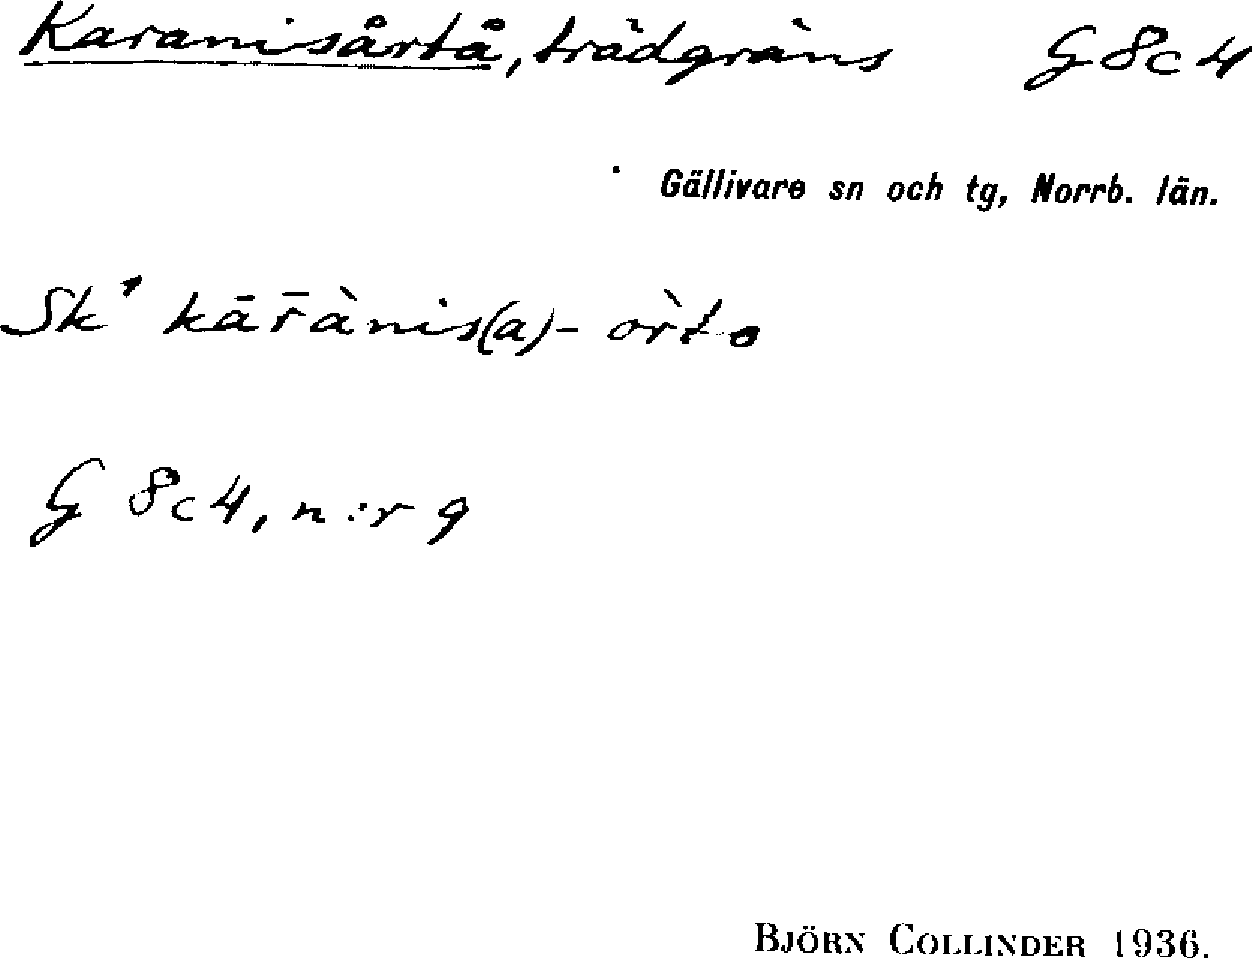 Karanisårtå, trädgräns G 8c4
Gällivare sn och tg, Norrb. län.
Sk' kār̄ànis(a)- òrto
G 8c4, n:r 9
BJÖRN COLLINDER 1936.